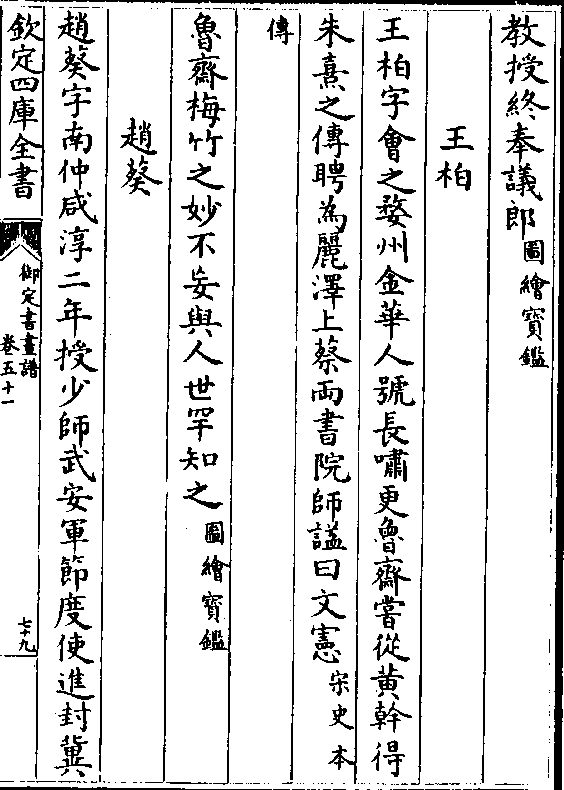 教授終奉議郎圖繪寶鑑
王柏
王柏字會之婺州金華人號長嘯更魯齋嘗從黃幹得
朱熹之傳聘為麗澤上蔡兩書院師諡曰文憲宋史本
傳
魯齋梅竹之妙不妄與人世罕知之圖繪寶鑑
趙葵
趙葵字南仲咸淳二年授少師武安軍節度使進封冀
欽定四庫全書
御定書畫譜
卷五十一
七十九